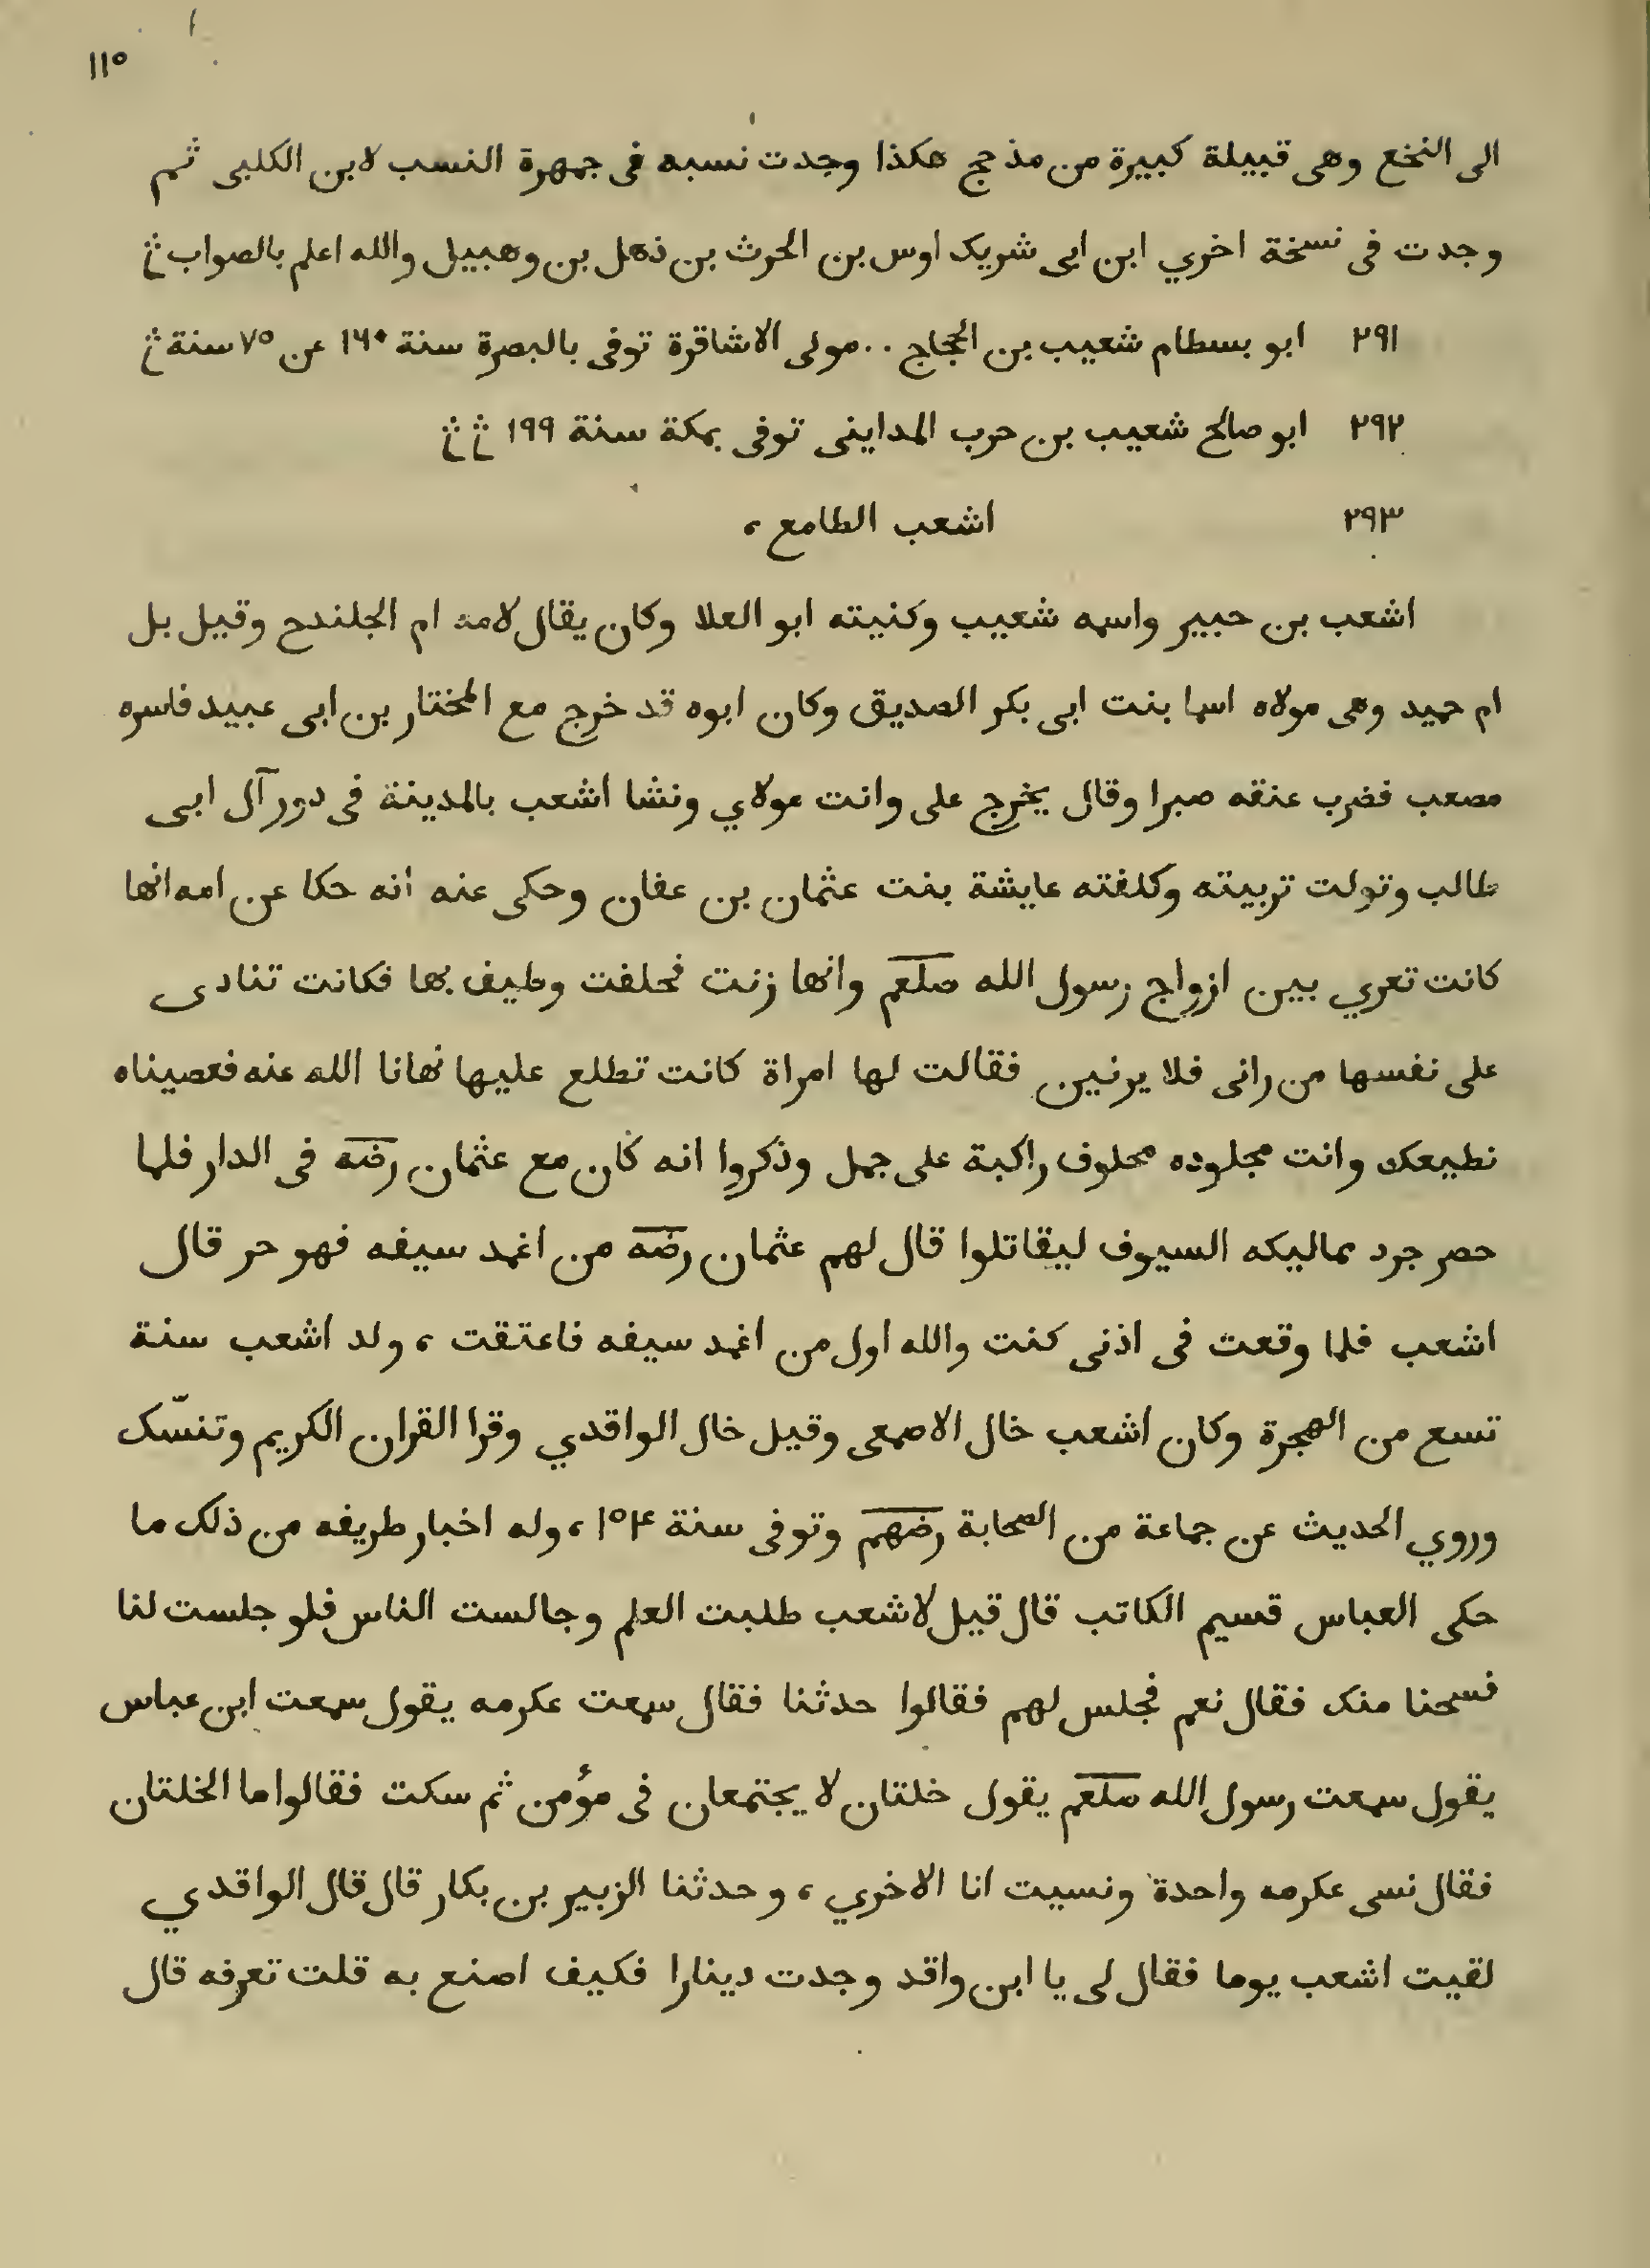 ١١٥
الى النخع وهى قبيلة كبيرة من مذحج هكذا وجدت نسبه فى جمهرة النسب لابن الكلبى ثم
وجدت فى نسخة اخري ابن ابى شريك اوس بن الحرث بن ذهل بن وهبيل والله اعلم بالصواب
٢٩١ ابو بسطام شعيب بن الحجاج .. مولى الاشاقرة توفى بالبصرة سنة ١٦٠ عن ٧٥ سنة
٢٩٢ ابو صالح شعيب بن حرب المداينى توفى بمكة سنة ١٩٩
٢٩٣ اشعب الطامع ،
اشعب بن حبير واسمه شعيب وكنيته ابو العلا وكان يقال لامه ام الجلندح وقيل بل
ام حميد وهى مولاه اسما بنت ابى بكر الصديق وكان ابوه قد خرج مع المختار بن ابى عبيد فاسره
مصعب فضرب عنقه صبرا وقال يخرج على وانت مولاي ونشا اشعب بالمدينة فى دور آل ابى
طالب وتولت تربيته وكلفته عايشة بنت عثمان بن عفان وحكى عنه انه حكا عن امه انها
كانت تعري بين ازواج رسول الله صلعم وانها زنت فحلفت وطيف بها فكانت تنادى
على نفسها من رانى فلا يرنين فقالت لها امراة كانت تطلع عليها نهانا الله عنه فعصيناه
نطيعك وانت مجلوده محلوف راكبة على جمل وذكروا انه كان مع عثمان رضه فى الدار فلما
حصر جرد مماليكه السيوف ليقاتلوا قال لهم عثمان رضه من اغمد سيفه فهو حر قال
اشعب فلما وقعت فى اذنى كنت والله اول من اغمد سيفه فاعتقت ، ولد اشعب سنة
تسع من الهجرة وكان اشعب خال الاصمعى وقيل خال الواقدي وقرا القران الكريم وتنسّك
وروي الحديث عن جماعة من الصحابة رضهم وتوفى سنة ١٥٤ ، وله اخبار طريفه من ذلك ما
حكى العباس قسيم الكاتب قال قيل لاشعب طلبت العلم وجالست الناس فلو جلست لنا
فسمحنا منك فقال نعم فجلس لهم فقالوا حدثنا فقال سمعت عكرمه يقول سمعت ابن عباس
يقول سمعت رسول الله صلعم يقول خلتان لا يجتمعان فى مؤمن ثم سكت فقالوا ما الخلتان
فقال نسى عكرمه واحدة ونسيت انا الاخري ، وحدثنا الزبير بن بكار قال قال الواقدي
لقيت اشعب يوما فقال لى يا ابن واقد وجدت دينارا فكيف اصنع به قلت تعرفه قال